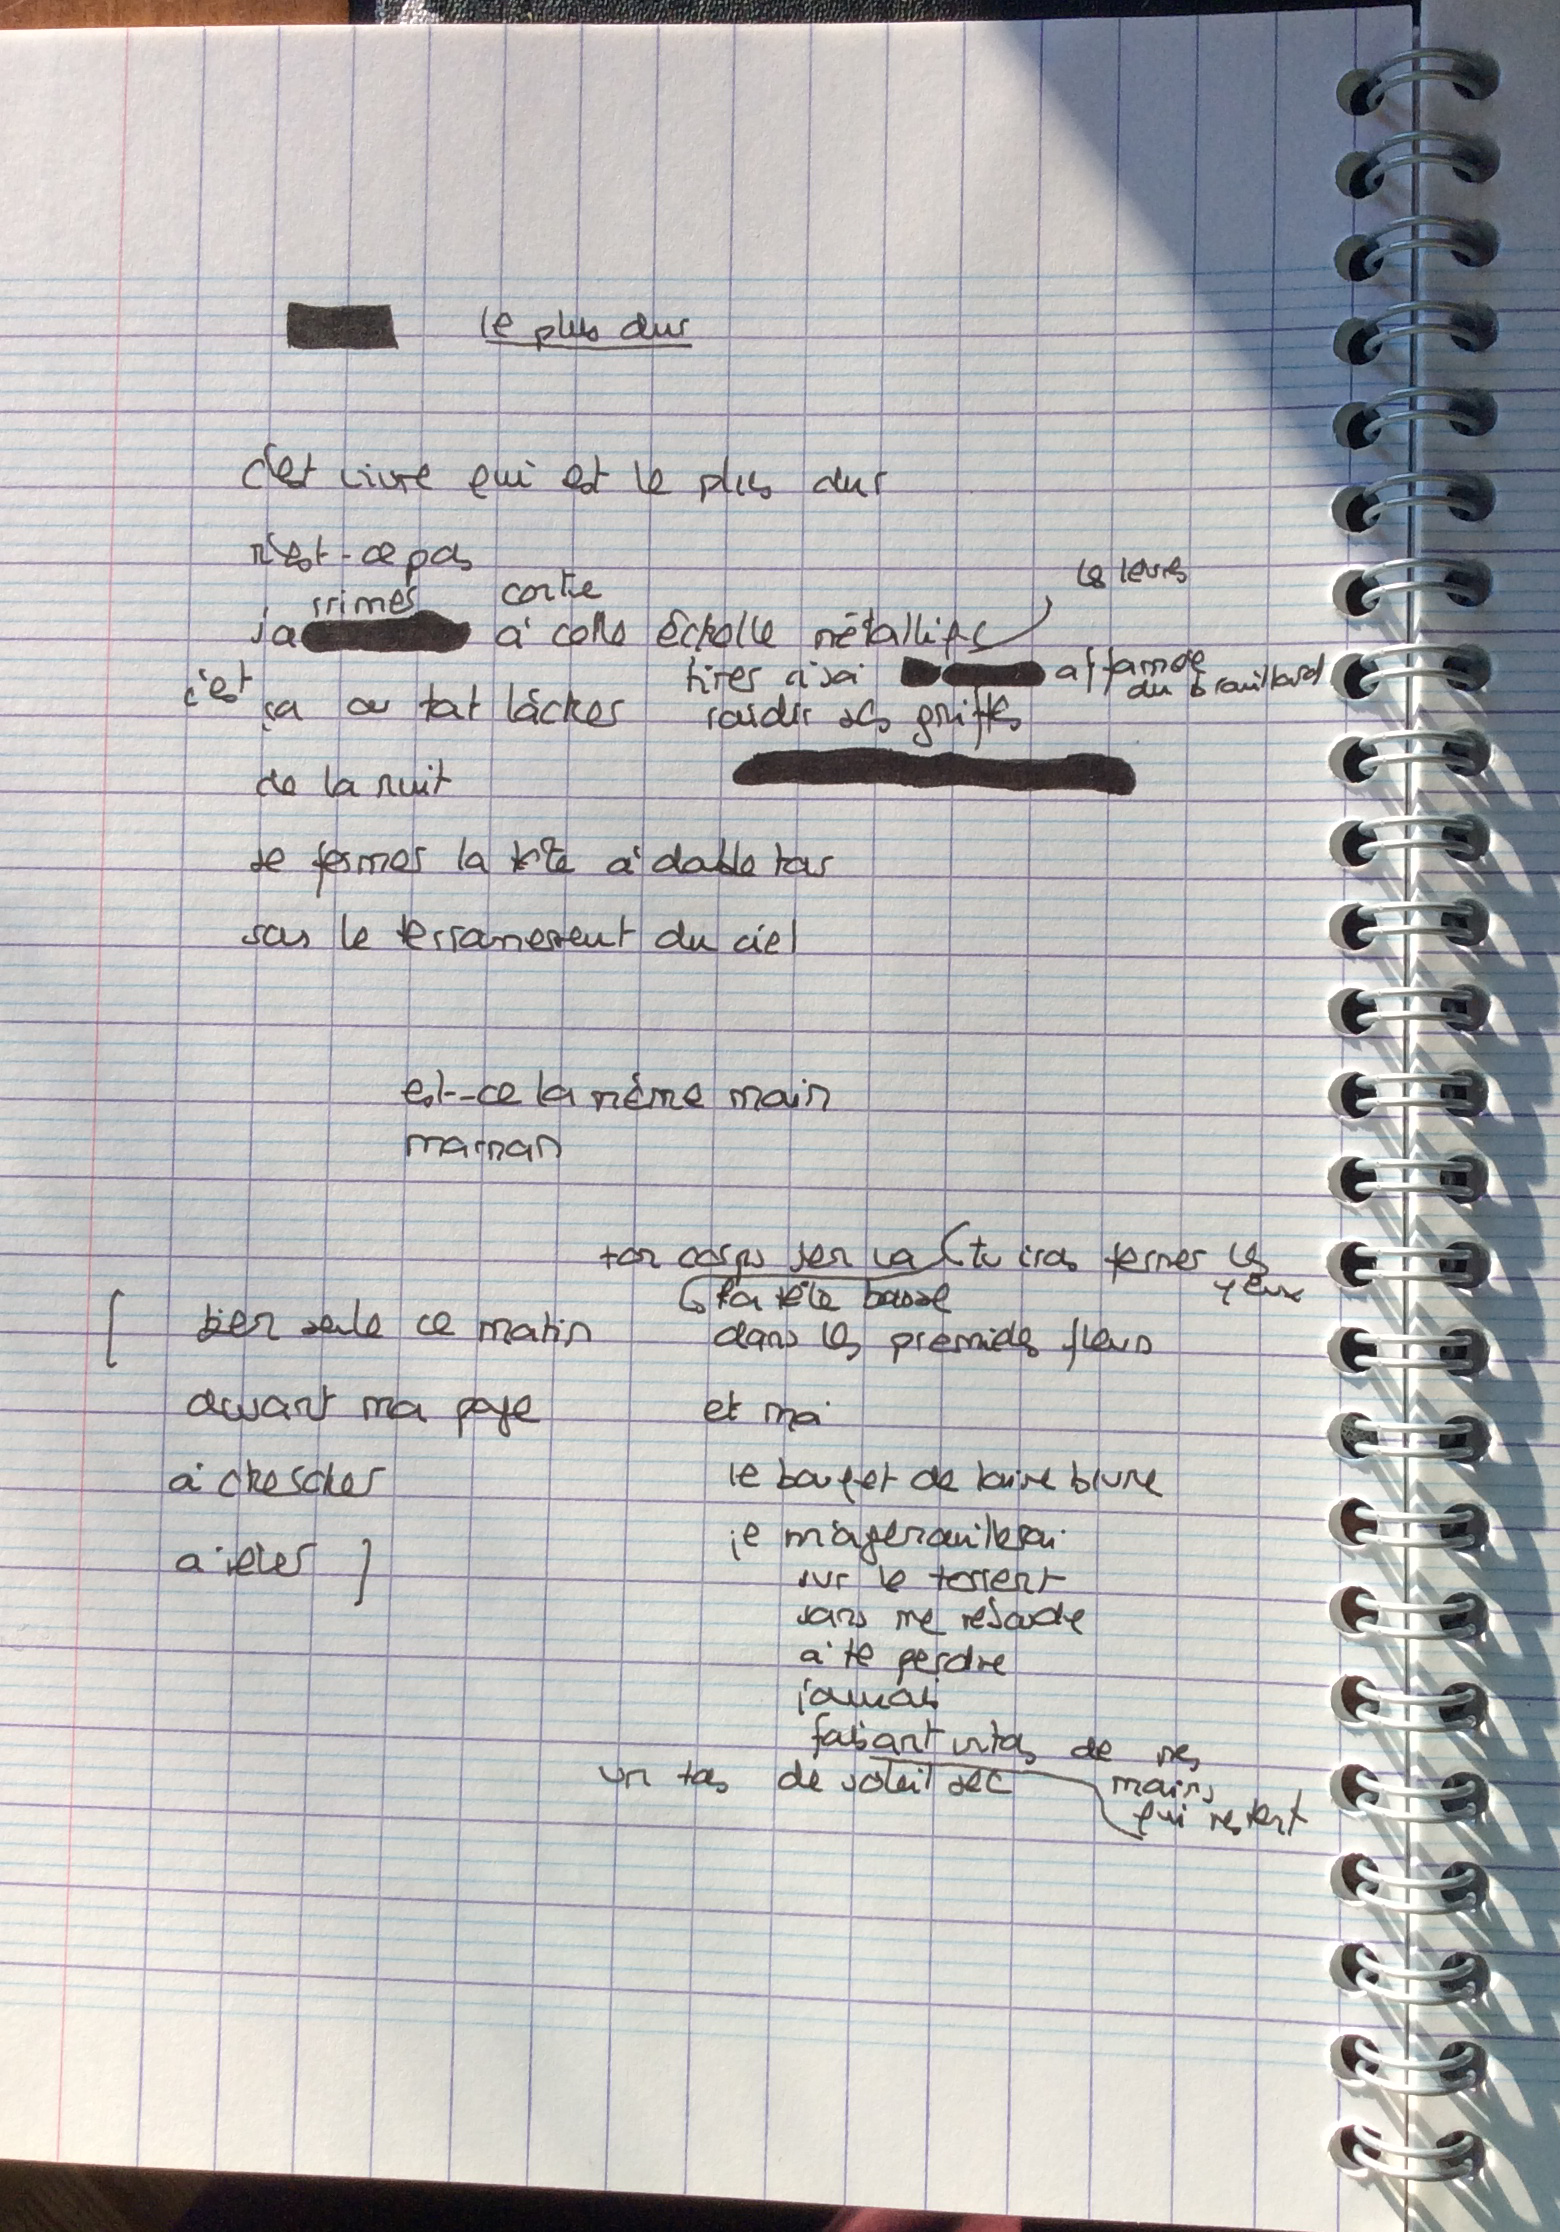 le plus dur
c'est vivre qui est le plus dur
n'est-ce pas
rrimés contre
j'a à cette échelle métallique les lèvres
tirer à soi affamée
du brouillard
c'est ça ou tout lâcher raidir ses griffes
de la nuit
se fermer la tête à double tour
sous le terrassement du ciel
est-ce la même main
maman
ton corps s'en va tu iras fermer les
yeux
la tête basse
bien seule ce matin dans les premières fleurs
devant ma page et moi
à chercher le bouquet de
je m'agenouillerai
à jeter
sur le torrent
sans me résoudre
à te perdre
jamais
faisant un tas de mes
mains
un tas de soleil sec
qui restent